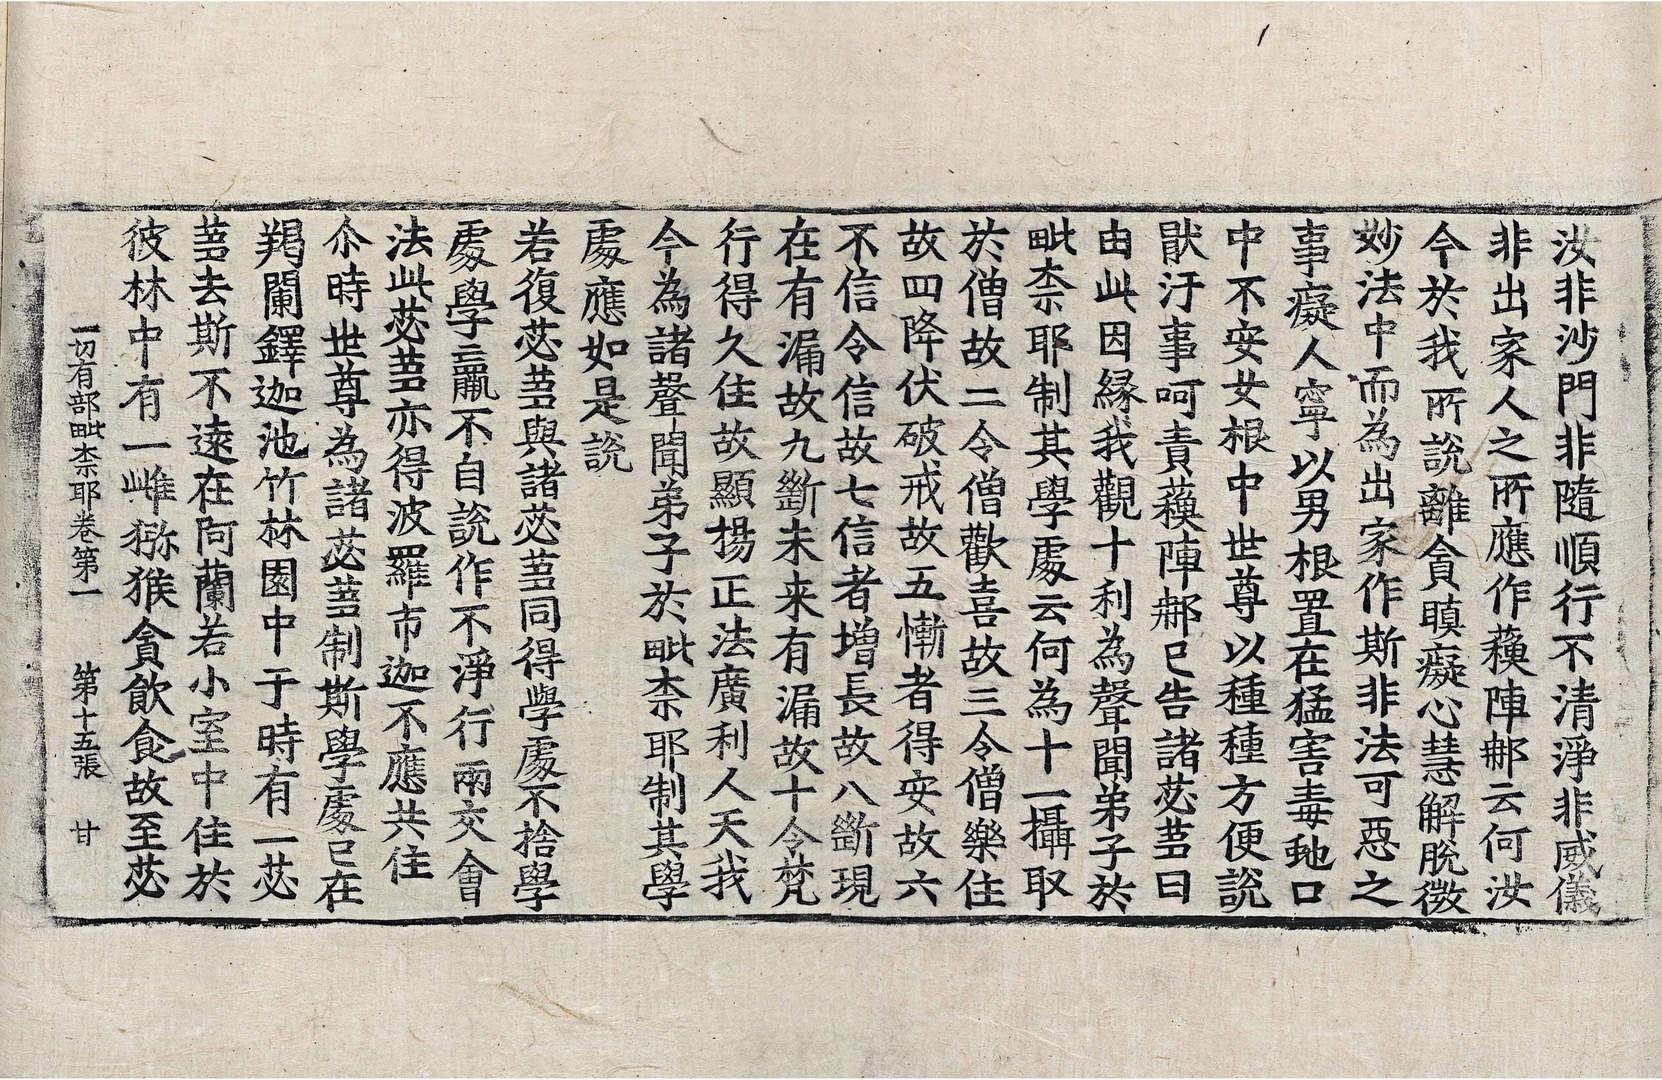 汝非沙門非隨順行不清淨非威儀
非出家人之所應作蘇陣那云何汝
今於我所說離貪瞋癡心慧解脫微
妙法中而為出家作斯非法可惡之
事癡人寧以男根置在猛害毒虵口
中不安女根中世尊以種種方便說
猒汙事呵責蘇陣那已告諸苾芻曰
由此因緣我觀十利為聲聞弟子於
毗柰耶制其學處云何為十一攝取
於僧故二令僧歡喜故三令僧樂住
故四降伏破戒故五慚者得安故六
不信令信故七信者增長故八斷現
在有漏故九斷未来有漏故十令梵
行得久住故顯揚正法廣利人天我
今為諸聲聞弟子於毗柰耶制其學
處應如是說
若復苾芻與諸苾芻同得學處不捨學
處學羸不自說作不淨行兩交會
法此苾芻亦得波羅市迦不應共住
尒時世尊為諸苾芻制斯學處已在
羯闌鐸迦池竹林園中于時有一苾
芻去斯不遠在阿蘭若小室中住於
彼林中有一雌猕猴貪飲食故至苾
一切有部毗柰耶卷第一 第十五張 甘